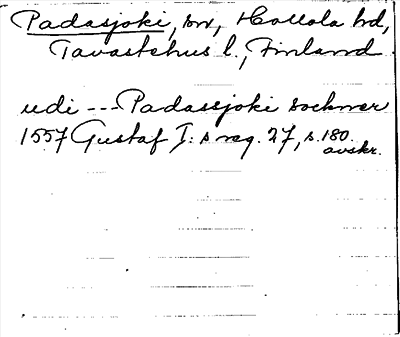 Padasjoki, sn, Hollola hd,
Tavastehus l., Finland.
udi --- Padassjoki sochner
1557 Gustaf I:s reg. 27, s. 180.
avskr.